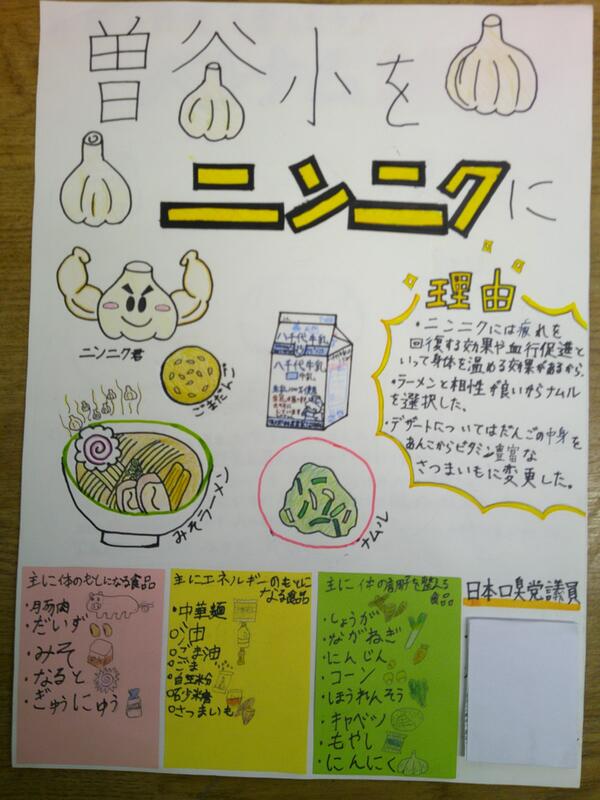 曽谷小を
ニンニクに
理由
・ニンニクには疲れを
回復する効果や血行促進と
いって身体を温める効果があるから。
・ラーメンと相性が良いからナムル
を選択した。
・デザートについてはだんごの中身を
あんこからビタミン豊富な
さつまいもに変更した。
ニンニク君
ごまだんご
八千代牛乳
八千代牛乳
牛乳
みそラーメン
ナムル
主に体のもとになる食品
・豚肉
・だいず
・みそ
・なると
・ぎゅうにゅう
主にエネルギーのもとに
なる食品
・中華麺
・油
・ごま油
・ごま
・白玉粉
・砂糖
・さつまいも
主に体の調子を整える
食品
・しょうが
・ながねぎ
・にんじん
・コーン
・ほうれんそう
・キャベツ
・もやし
・にんにく
日本口臭党議員